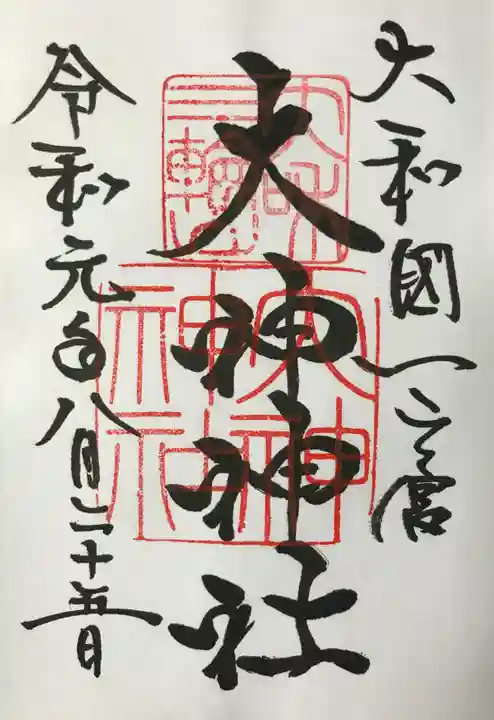 大和國一之宮
大神神社
令和元年八月二十五日
三輪
大神
神社